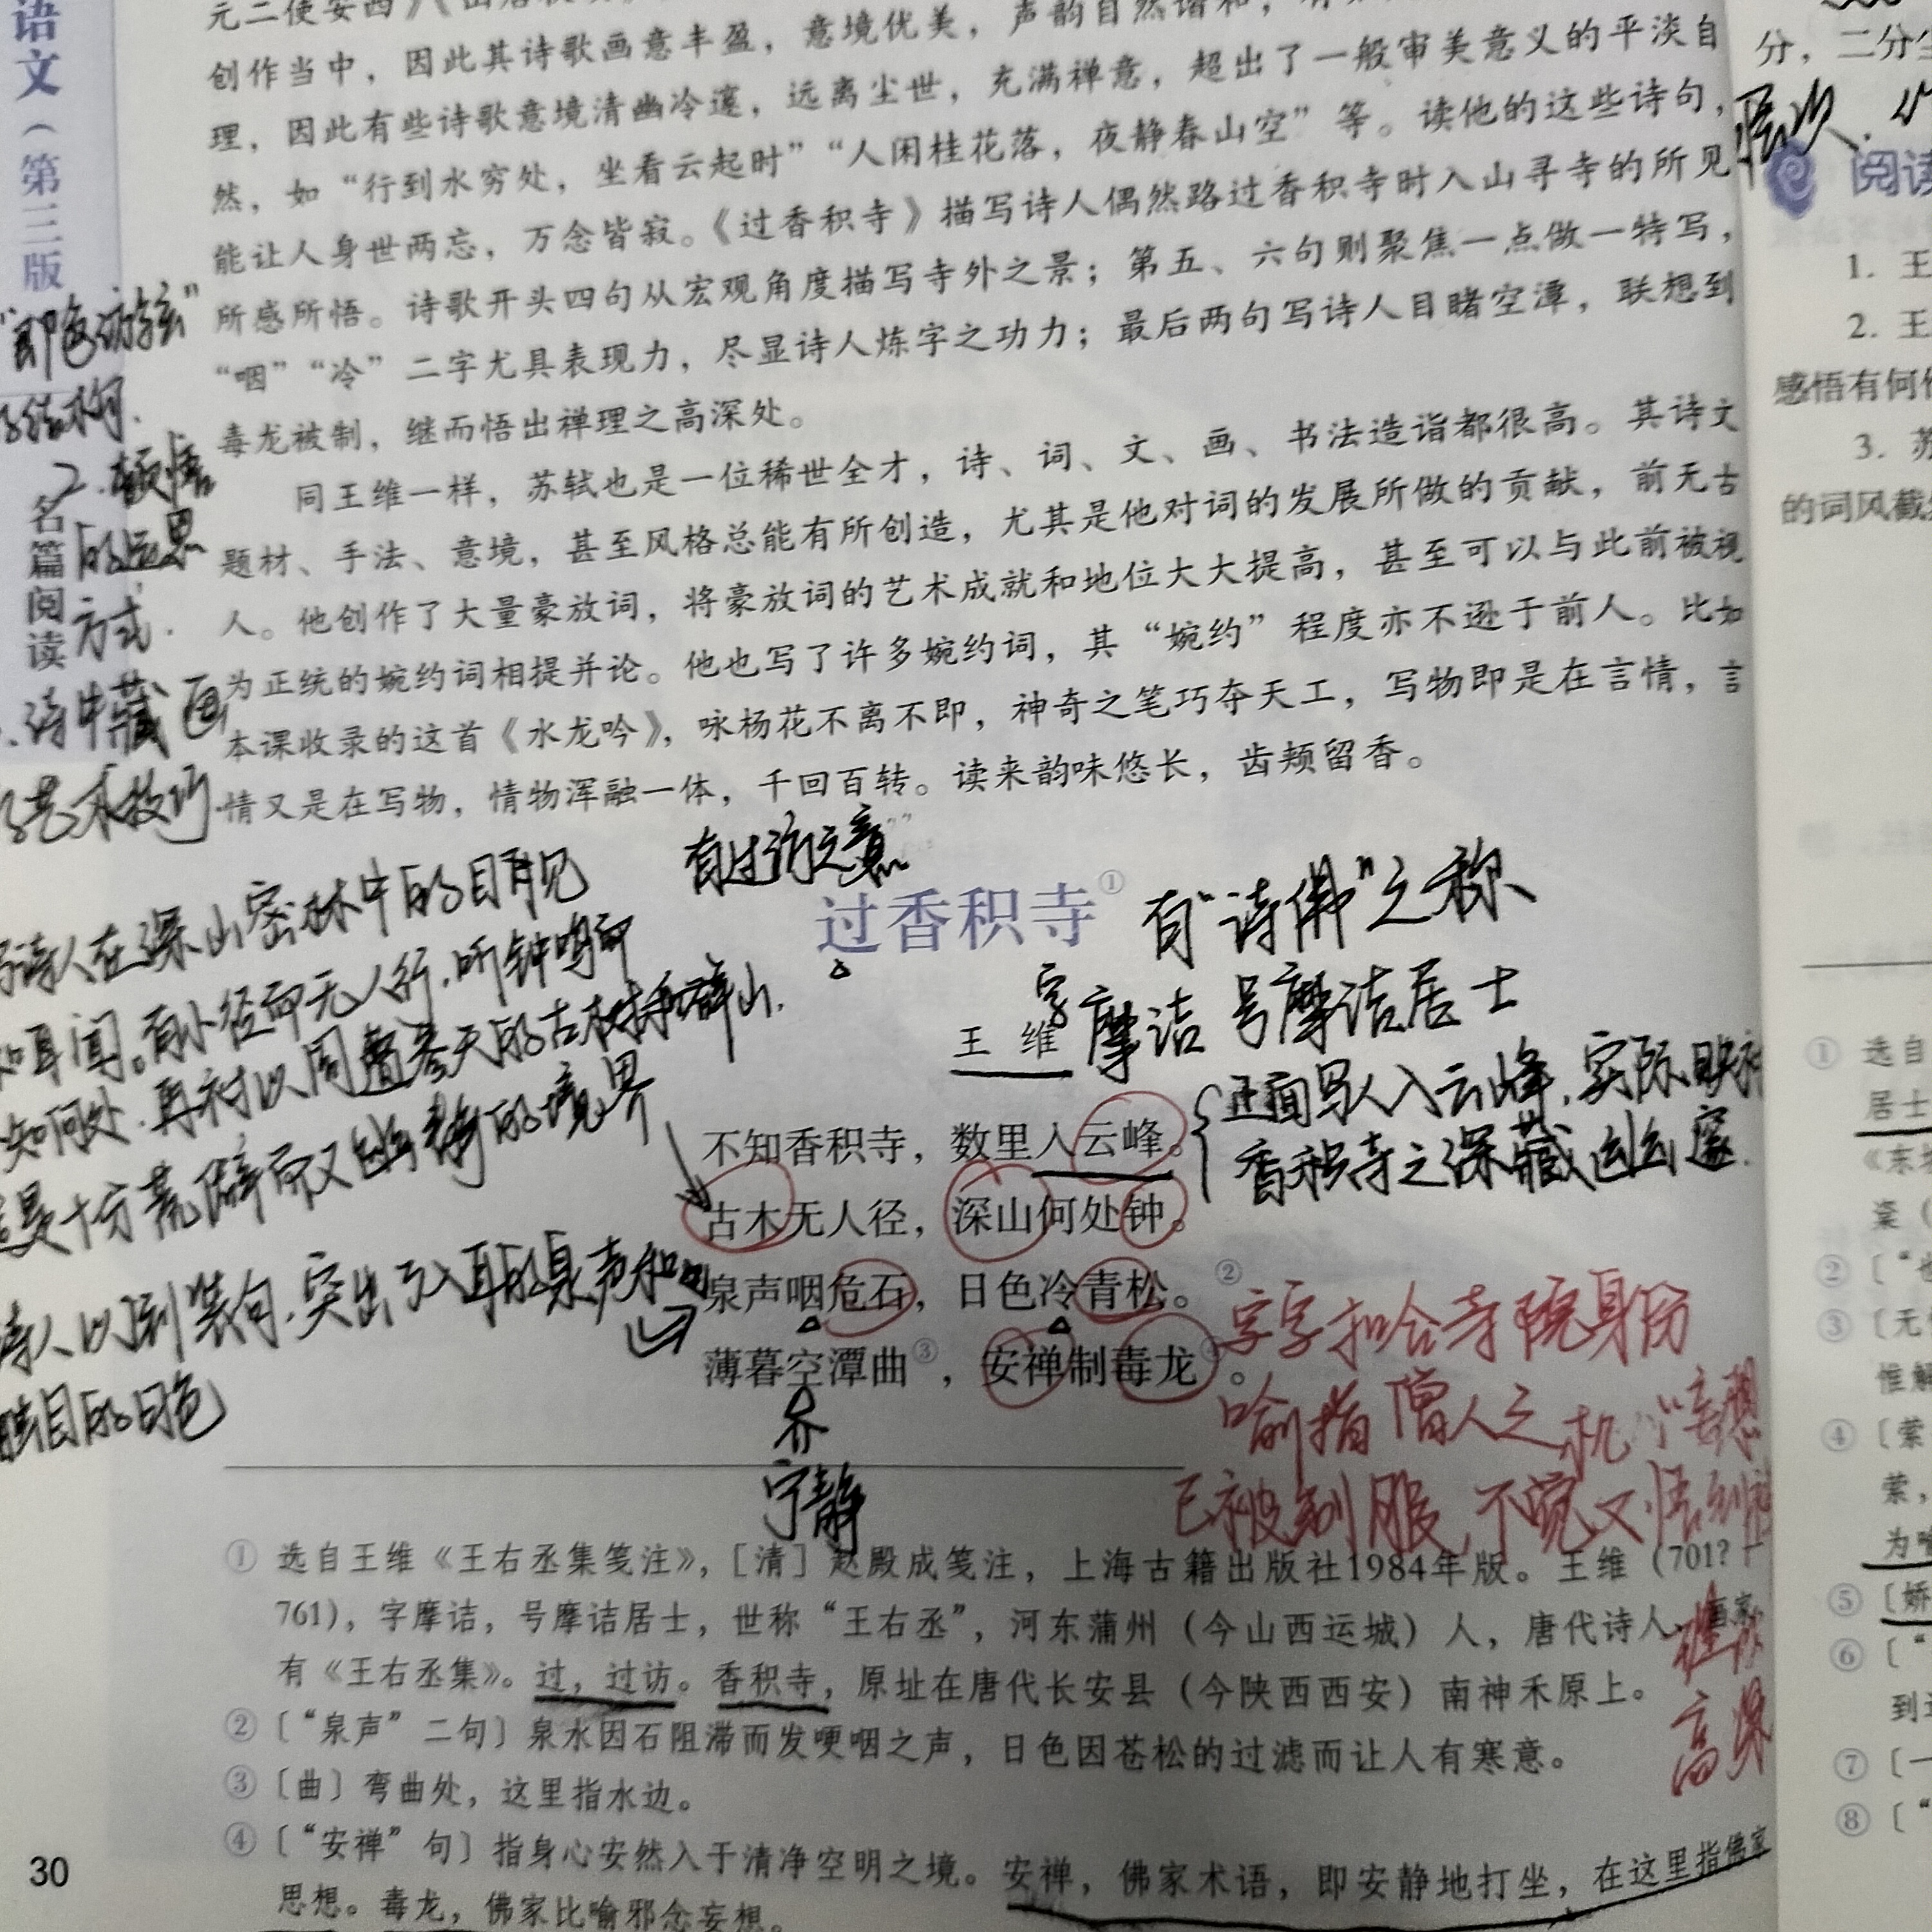 语文（第三版
名篇阅读
元二使安西》《
创作当中，因此其诗歌画意丰盈，意境优美，声韵自然谐和，
理，因此有些诗歌意境清幽冷邃，远离尘世，充满禅意，超出了一般审美意义的平淡自
然，如“行到水穷处，坐看云起时”“人闲桂花落，夜静春山空”等。读他的这些诗句，
能让人身世两忘，万念皆寂。《过香积寺》描写诗人偶然路过香积寺时入山寻寺的所见
所感所悟。诗歌开头四句从宏观角度描写寺外之景；第五、六句则聚焦一点做一特写，
“咽”“冷”二字尤具表现力，尽显诗人炼字之功力；最后两句写诗人目睹空潭，联想到
毒龙被制，继而悟出禅理之高深处。
同王维一样，苏轼也是一位稀世全才，诗、词、文、画、书法造诣都很高。其诗文
题材、手法、意境，甚至风格总能有所创造，尤其是他对词的发展所做的贡献，前无古
人。他创作了大量豪放词，将豪放词的艺术成就和地位大大提高，甚至可以与此前被视
为正统的婉约词相提并论。他也写了许多婉约词，其“婉约”程度亦不逊于前人。比如
本课收录的这首《水龙吟》，咏杨花不离不即，神奇之笔巧夺天工，写物即是在言情，言
情又是在写物，情物浑融一体，千回百转。读来韵味悠长，齿颊留香。
“即色访玄”
结构.
2.顿悟
的运思
方式.
诗中藏画
艺术技巧.
有过访之意
过香积寺①
有“诗佛”之称
王维
字摩诘 号摩诘居士
诗人在深山密林中的目见
和耳闻。有小径而无人行.听钟鸣而
知何处.再衬以周遭参天的古树和群山.
是十分荒僻而又幽静的境界
正面写人入云峰.实际映衬
香积寺之深藏幽邃.
不知香积寺，数里入云峰。
古木无人径，深山何处钟。
泉声咽危石，日色冷青松。②
薄暮空潭曲③，安禅制毒龙④。
诗人以倒装句.突出了入耳的泉声和
触目的日色
宁静
字字扣合寺院身份
喻指僧人之机心妄想
已被制服,不觉又悟到禅
理的
高深
①选自王维《王右丞集笺注》，［清］赵殿成笺注，上海古籍出版社1984年版。王维（701？—
761），字摩诘，号摩诘居士，世称“王右丞”，河东蒲州（今山西运城）人，唐代诗人、画家，
有《王右丞集》。过，过访。香积寺，原址在唐代长安县（今陕西西安）南神禾原上。
②〔“泉声”二句〕泉水因石阻滞而发哽咽之声，日色因苍松的过滤而让人有寒意。
③〔曲〕弯曲处，这里指水边。
④〔“安禅”句〕指身心安然入于清净空明之境。安禅，佛家术语，即安静地打坐，在这里指佛家
思想。毒龙，佛家比喻邪念妄想。
30
分，二分尘
阅读
1. 王
2. 王
感悟有何
3. 苏
的词风截
①选自
居士
《东坡
②〔“
③〔无
惟解
④〔萦
萦，
为
⑤〔娇
⑥〔“
到
⑦〔一
⑧〔“